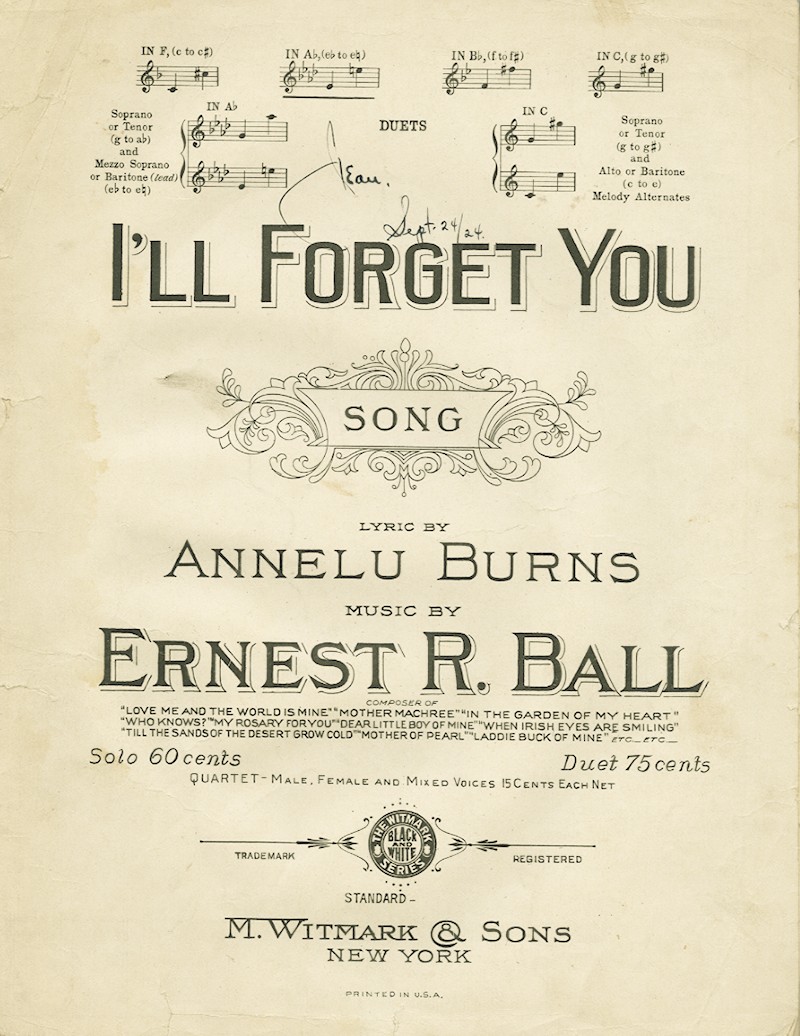 IN F, (c to c♯)
IN A♭, (e♭ to e♮)
IN B♭, (f to f♯)
IN C, (g to g♯)
IN A♭
Soprano
or Tenor
(g to a♭)
and
Mezzo Soprano
or Baritone (lead)
(e♭ to e♮)
DUETS
IN C
Soprano
or Tenor
(g to g♯)
and
Alto or Baritone
(c to e)
Melody Alternates
Jean.
Sept. 24/24.
I'LL FORGET YOU
SONG
LYRIC BY
ANNELU BURNS
MUSIC BY
ERNEST R. BALL
COMPOSER OF
"LOVE ME AND THE WORLD IS MINE" "MOTHER MACHREE" "IN THE GARDEN OF MY HEART"
"WHO KNOWS?" "MY ROSARY FOR YOU" "DEAR LITTLE BOY OF MINE" "WHEN IRISH EYES ARE SMILING"
"TILL THE SANDS OF THE DESERT GROW COLD" "MOTHER OF PEARL" "LADDIE BUCK OF MINE" ETC.—ETC.—
Solo 60 cents
Duet 75 cents
QUARTET—MALE, FEMALE AND MIXED VOICES 15 CENTS EACH NET
THE WITMARK
BLACK
AND
WHITE
SERIES
TRADEMARK
REGISTERED
STANDARD—
M. WITMARK & SONS
NEW YORK
PRINTED IN U.S.A.